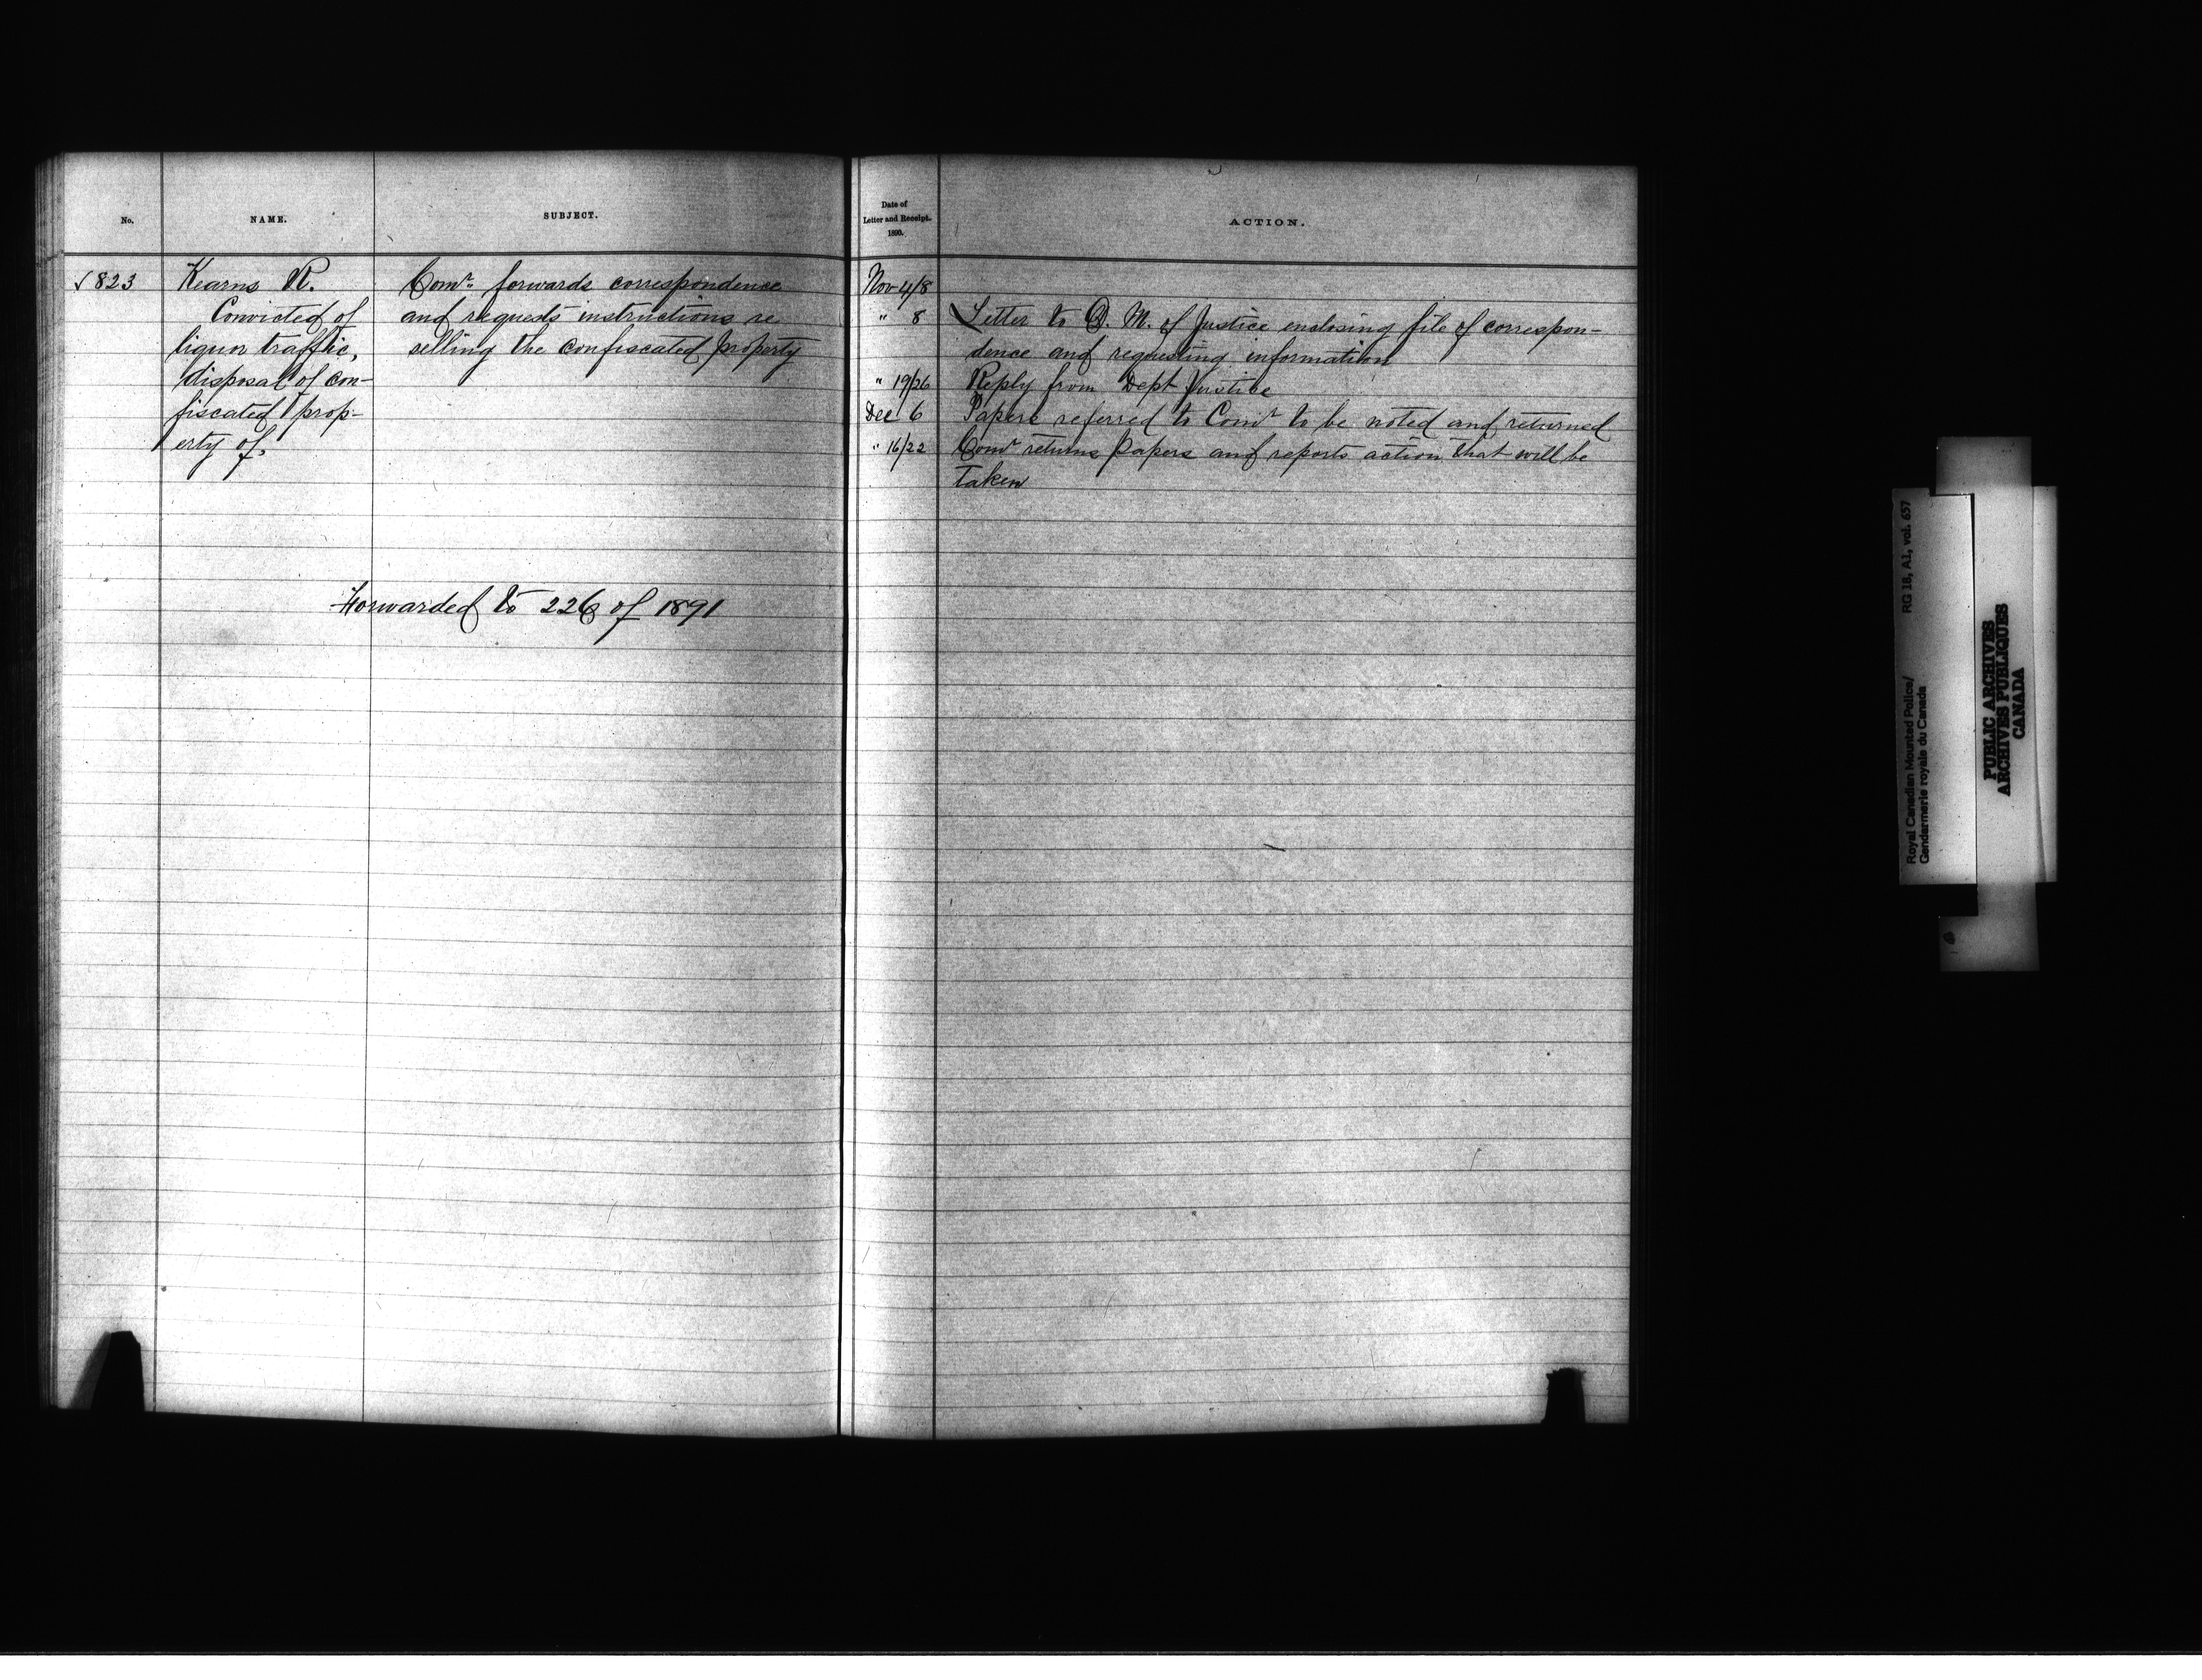 No.
NAME.
SUBJECT.
√ 823
Kearns R.
Convicted of
liquor traffic,
disposal of con-
fiscated prop-
erty of.
Comr. forwards correspondence
and requests instructions re
selling the confiscated property
Forwarded to 226 of 1891
Date of
Letter and Receipt.
1890.
ACTION.
Nov 4/8
" 8 Letter to D. M. of Justice enclosing file of correspon-
dence and requesting information
" 19/26 Reply from Dept Justice
Dec 6 Papers referred to Comr to be noted and returned
" 16/22 Comr returns papers and reports action that will be
taken
Royal Canadian Mounted Police/ RG 18, A1, vol. 657
Gendarmerie royale du Canada
PUBLIC ARCHIVES
ARCHIVES PUBLIQUES
CANADA